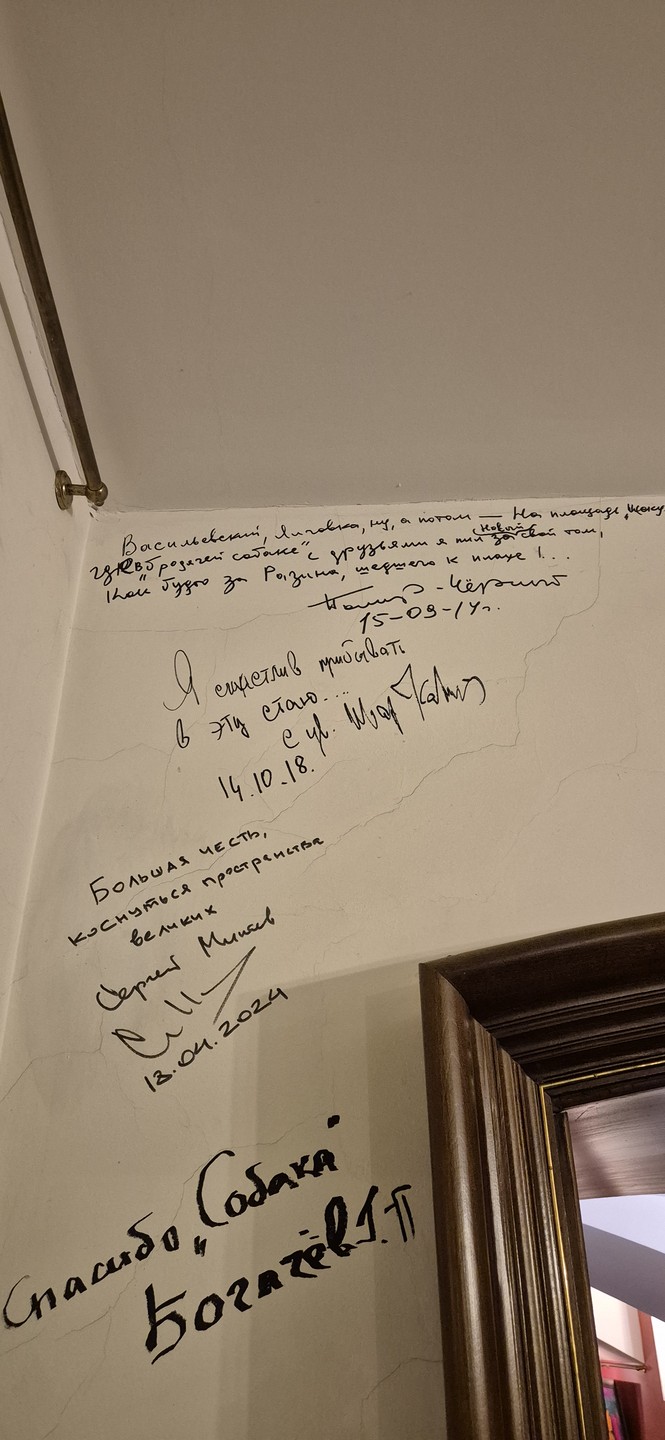 Васильевский, Лиговка, ну, а потом — На площадь
где в "Бродячей собаке" с друзьями я пил за свой новый том,
Как будто за Разина, шедшего к плахе!...
15-09-14г.
Я счастлив прибывать
в эту стаю...
С ув.
14.10.18.
Большая честь,
коснуться пространства
великих
Сергей
13.04.2024
Спасибо „Собака"
Богачёв Г.П